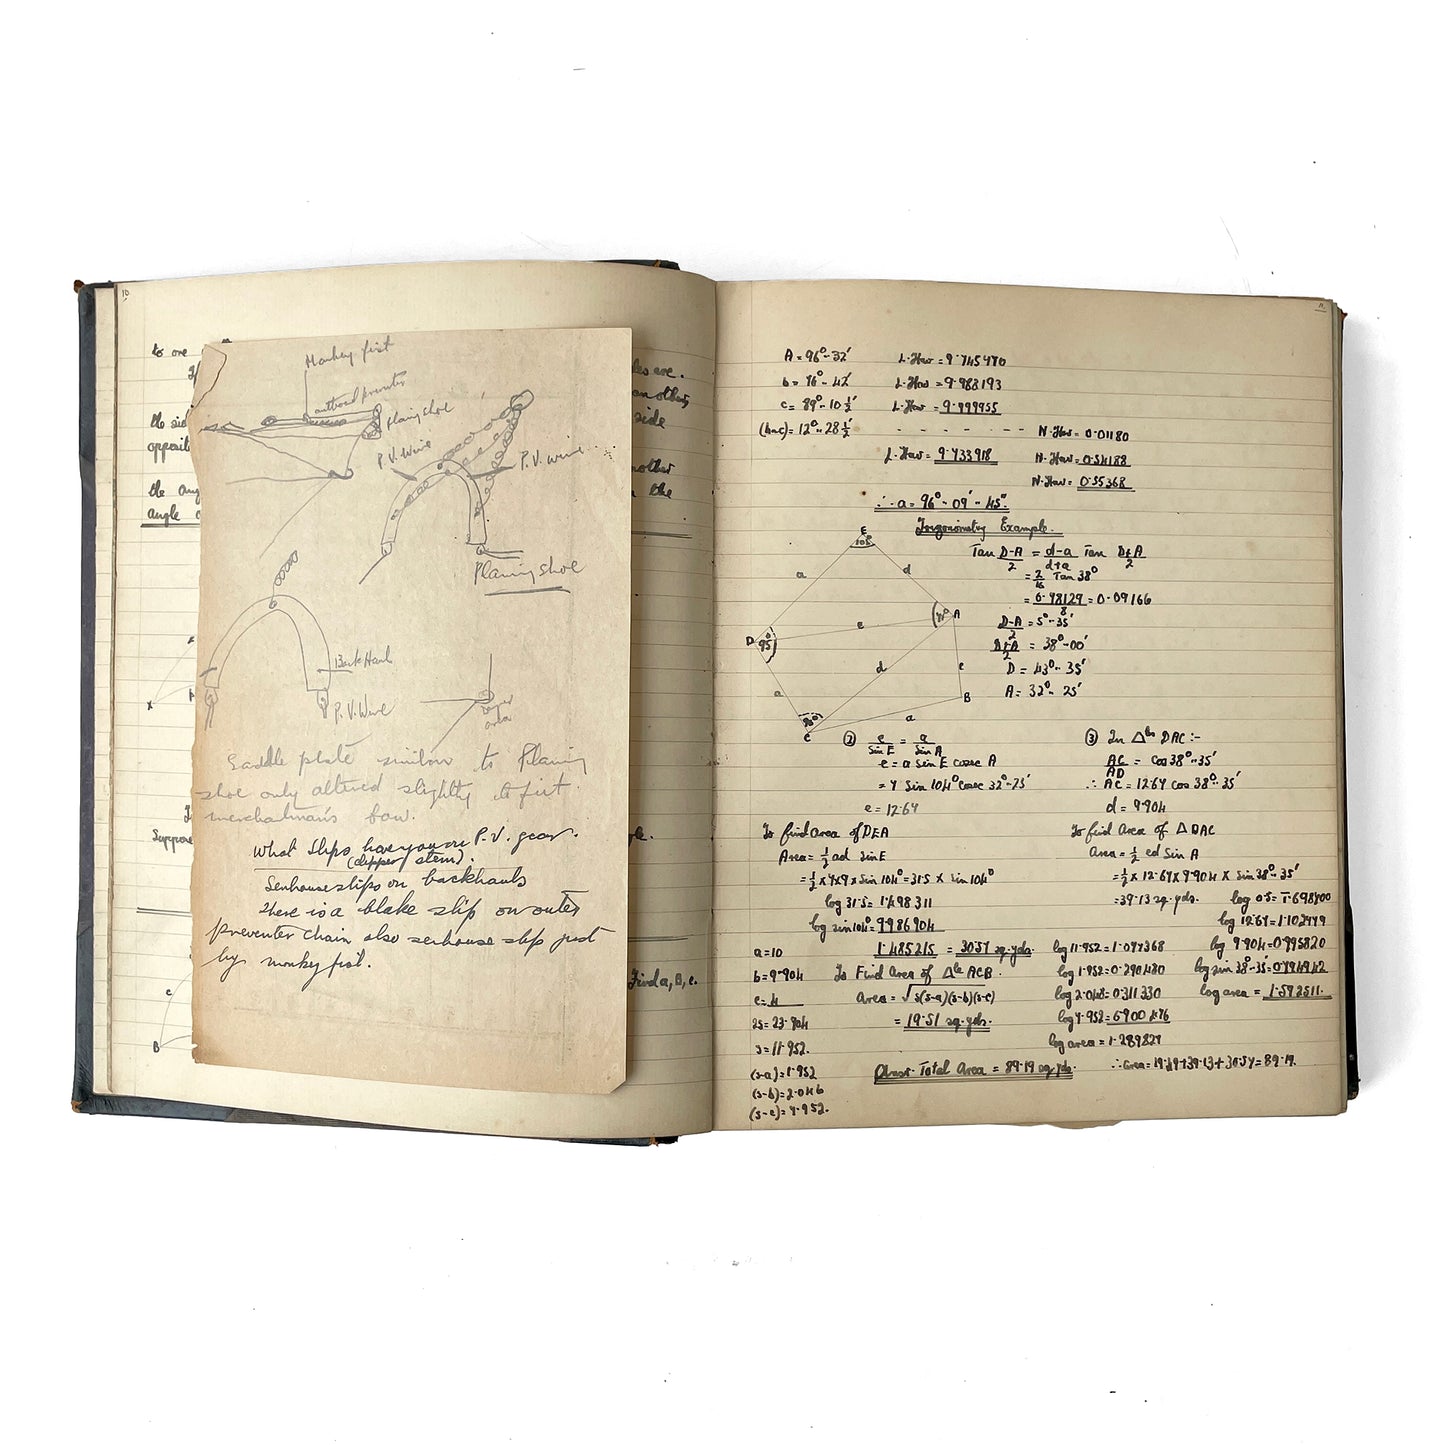 10
to one
les are.
another,
the sid
side
opposit
nother
the ang
the
angle
Monkey fist
outboard preventer
Planing shoe
P.V. Wire
P.V. wire
Planing shoe
Back Haul
P.V. Wire
Saddle plate similar to Planing
shoe only altered slightly to fit
merchantman's bow.
What slips have you on P.V. gear.
(clipper stem).
Senhouse slips on backhauls
There is a blake slip on outer
preventer chain also senhouse slip just
by monkey fist.
Suppose
gle.
Find a, B, c.
x
c
B
11
A = 96° - 32' L.Hav = 9.745470
b = 76° - 42' L.Hav = 9.988193
c = 89° - 10½' L.Hav = 9.999955
(b~c) = 12° - 28½' - - - - - - N.Hav = 0.01180
L.Hav = 9.733918 N.Hav = 0.54188
N.Hav = 0.55368
∴ a = 96° - 09' - 45".
Trigonometry Example.
E
104°
a
d
D
95°
e
71° A
d
e
a
90°
C
a
B
Tan D-A/2 = d-a/d+a Tan D+A/2
= 2/16 Tan 38°
= 0.78129/8 = 0.09766
D-A/2 = 5° - 35'
D+A/2 = 38° - 00'
D = 43° - 35'
A = 32° - 25'
② e/Sin E = a/Sin A
e = a Sin E cosec A
= 7 Sin 104° Cosec 32° - 25'
e = 12.67
③ In Δles DAC :-
AC/AD = Cos 38° - 35'
∴ AC = 12.67 Cos 38° - 35'
d = 9.904
To find area of DEA
Area = ½ ad Sin E
= ½ x 7 x 9 x Sin 104° = 31.5 x Sin 104°
log 31.5 = 1.498311
log sin 104° = 9.986904
1.485215 = 30.57 sq. yds.
To find Area of Δ DAC
Area = ½ ed Sin A
= ½ x 12.67 x 9.904 x Sin 38° - 35'
= 39.13 sq. yds. log 0.5 = 1̅.698970
log 12.67 = 1.102779
log 9.904 = 0.995820
log sin 38° - 35' = 9.794942
log area = 1.592511.
a = 10
b = 9.904
c = 4
2s = 23.904
s = 11.952.
(s-a) = 1.952
(s-b) = 2.048
(s-c) = 7.952.
To Find Area of Δle ACB.
Area = √s(s-a)(s-b)(s-c)
= 19.51 sq. yds.
log 11.952 = 1.077368
log 1.952 = 0.290480
log 2.048 = 0.311330
log 7.952 = 0.900476
log area = 1.289827
Answer Total Area = 89.19 sq yds.
∴ Area = 19.49 + 39.13 + 30.57 = 89.19.